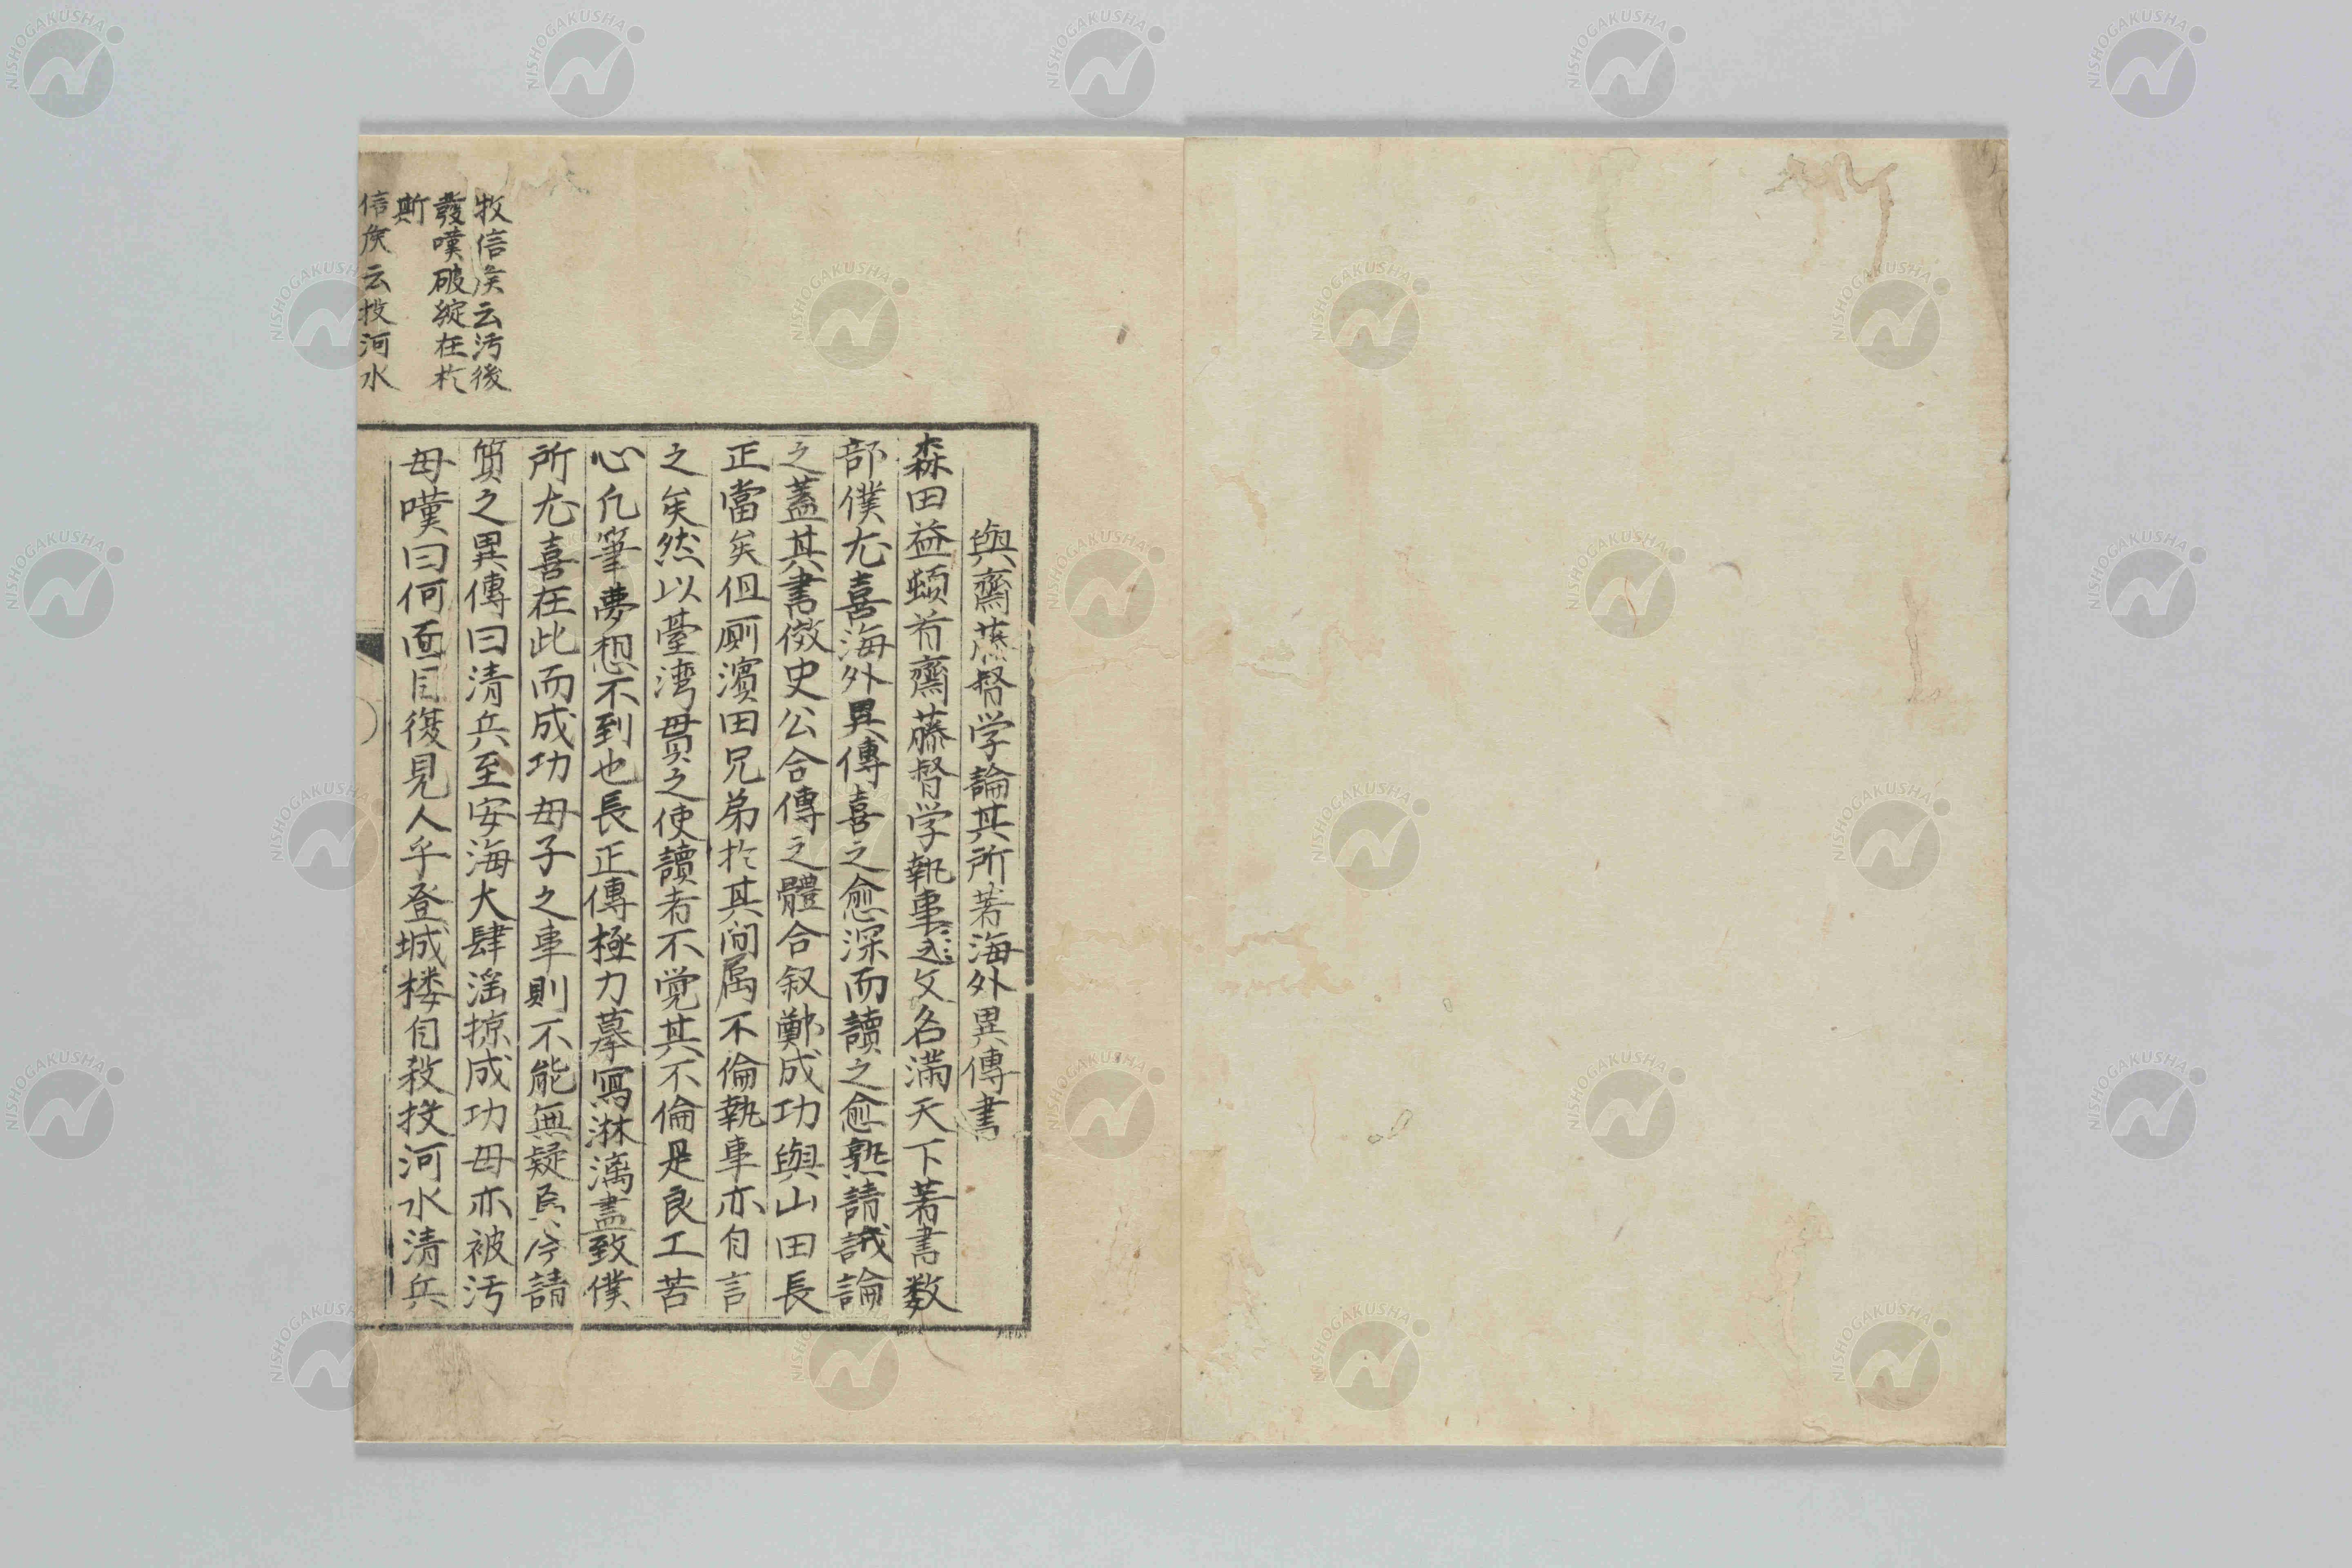 牧信矦云汚後
發嘆破綻在於
斯
信矦云投河水
與齋藤督学論其所著海外異傳書
森田益頓首齋藤督学執事之文名滿天下著書数
部僕尤喜海外異傳喜之愈深而讀之愈熟請試論
之蓋其書倣史公合傳之體合叙鄭成功與山田長
正當矣但厠濱田兄弟於其间属不倫執事亦自言
之矣然以臺湾毌貫之使讀者不覚其不倫是良工苦
心凡筆夢想不到也長正傳極力摹寫淋漓盡致僕
所尤喜在此而成功母子之事則不能無疑焉今請
質之異傳曰清兵至安海大肆滛掠成功母亦被汚
母嘆曰何面目復見人乎登城楼自殺投河水清兵
NISHOGAKUSHA